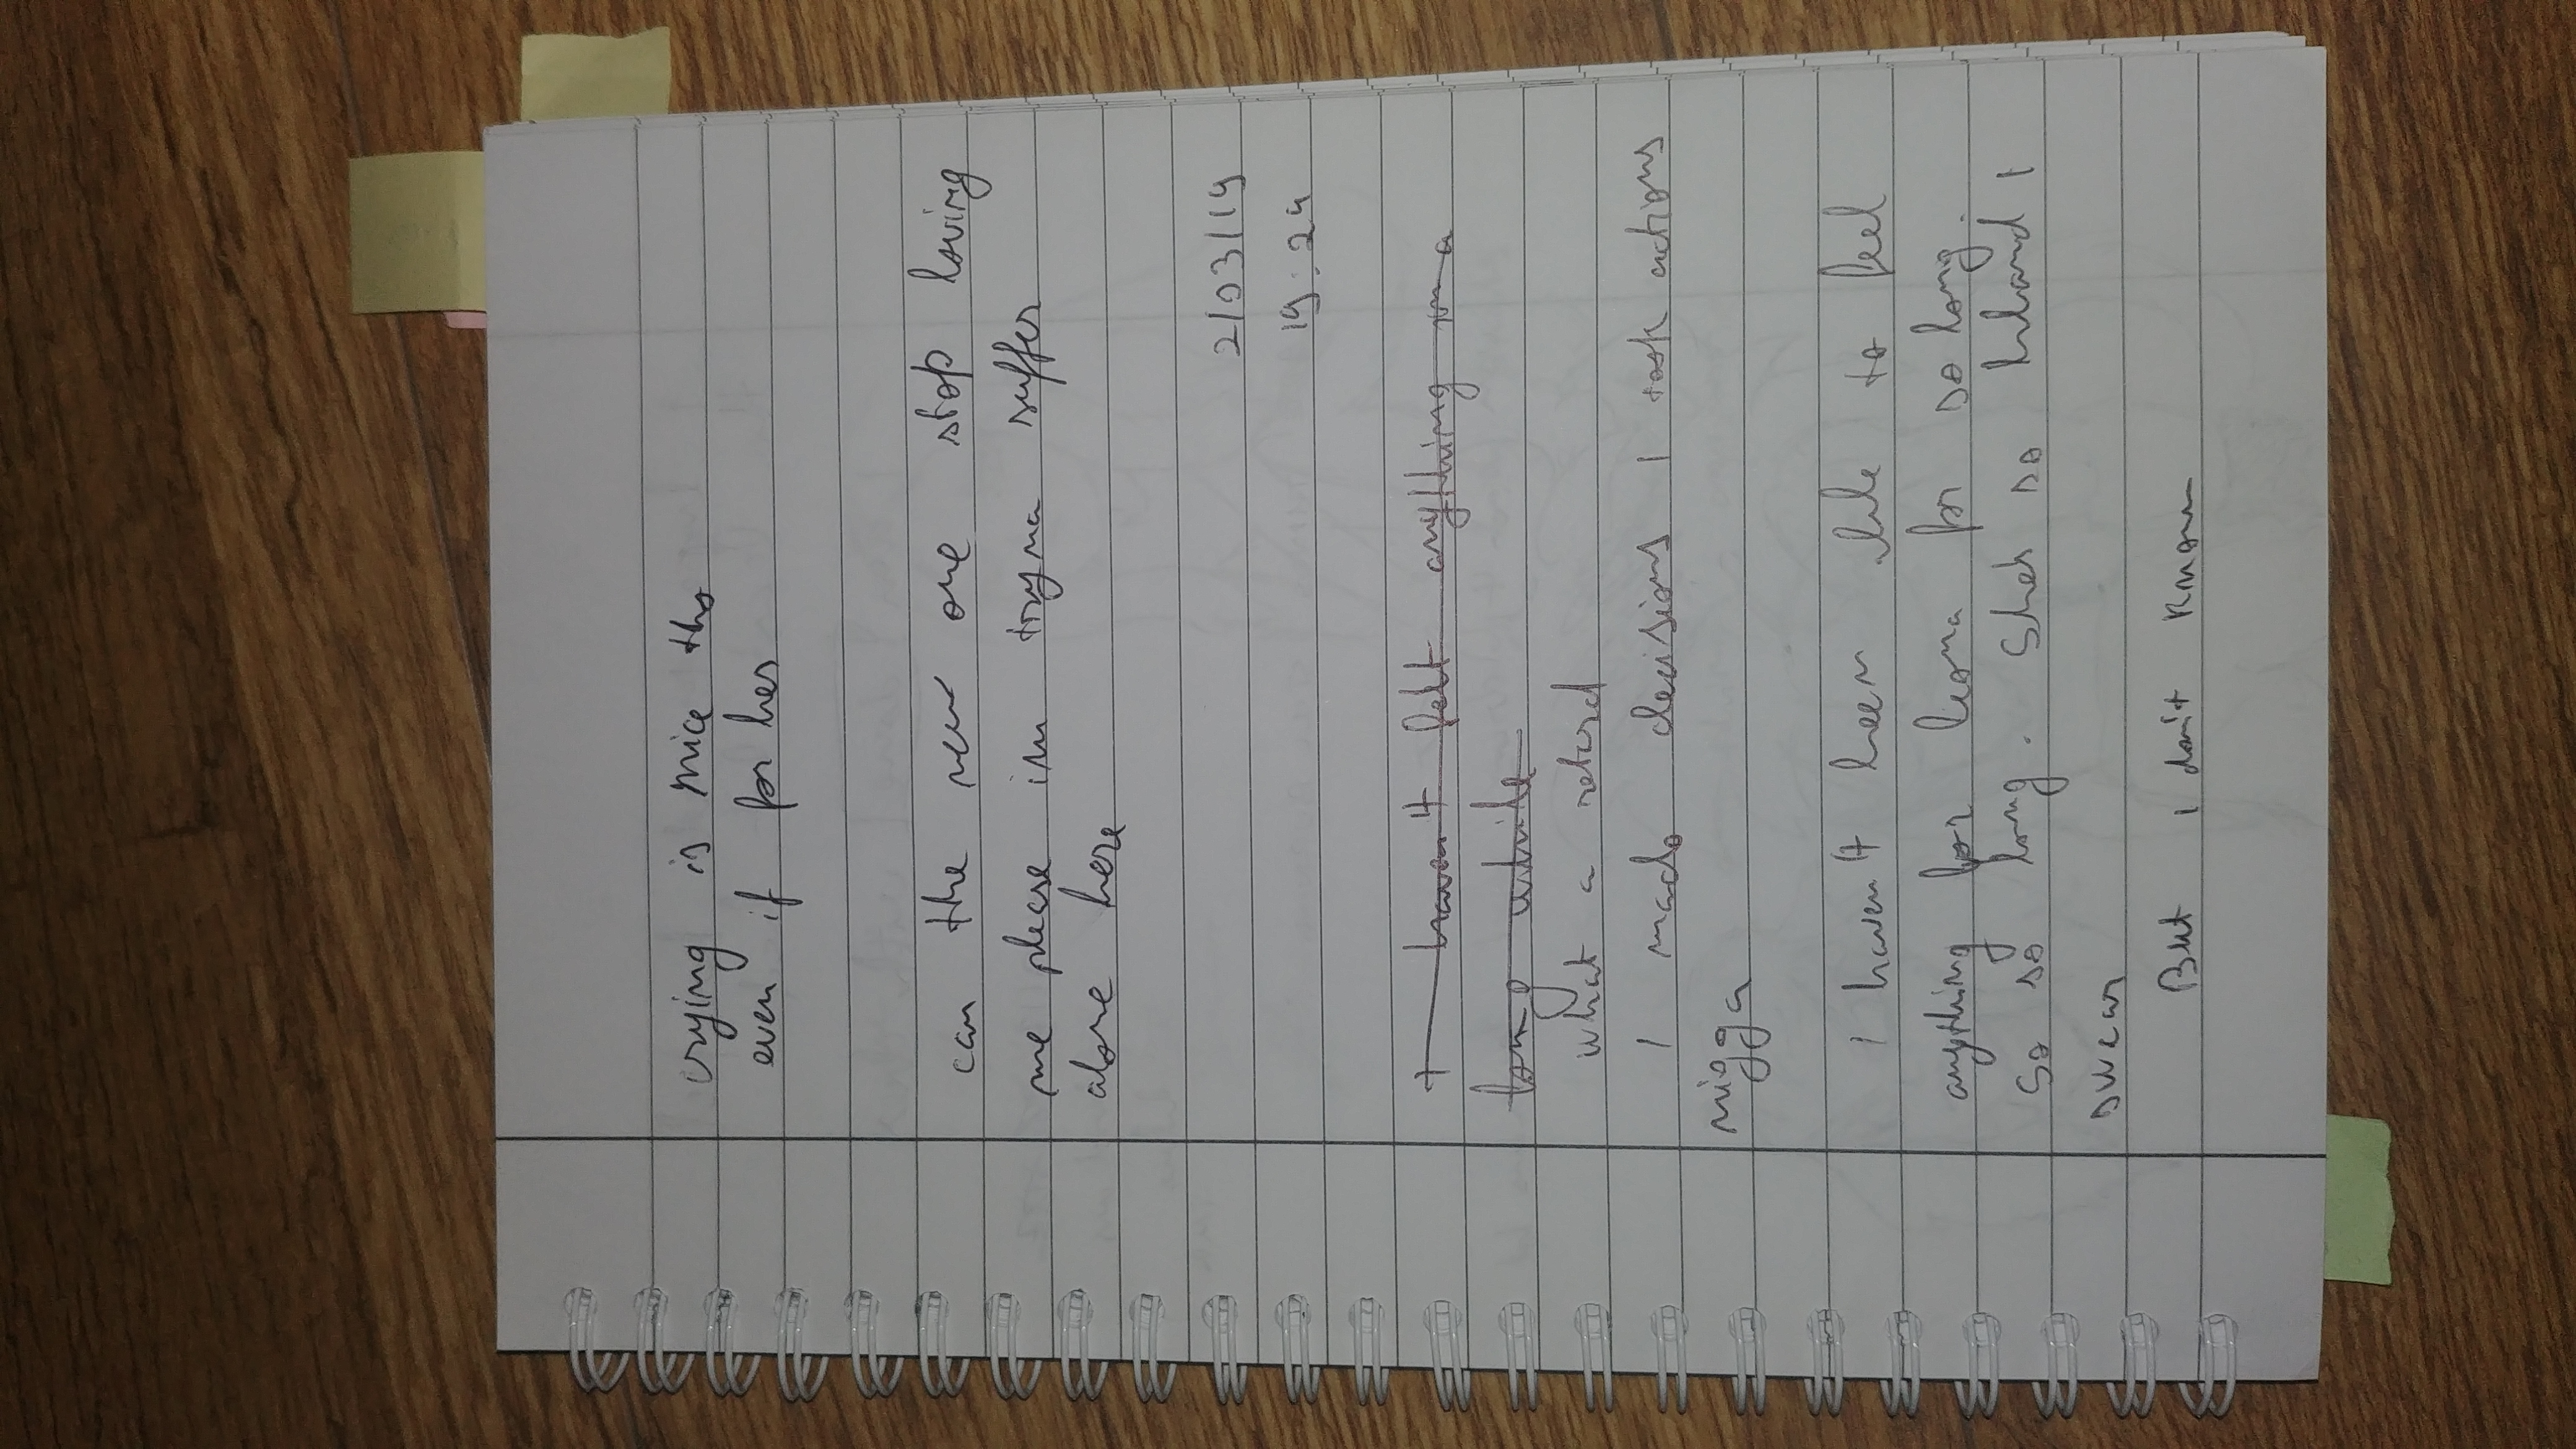 crying is nice tho
even if for her
can the new one stop loving
me please im tryna suffer
alone here
2/03/19
19:24
I haven't felt anything in a
long while
what a retard
I made decisions I took actions
nigga
I haven't been able to feel
anything for leona for so long.
So so long. She's so bland I
swear
But I don't know